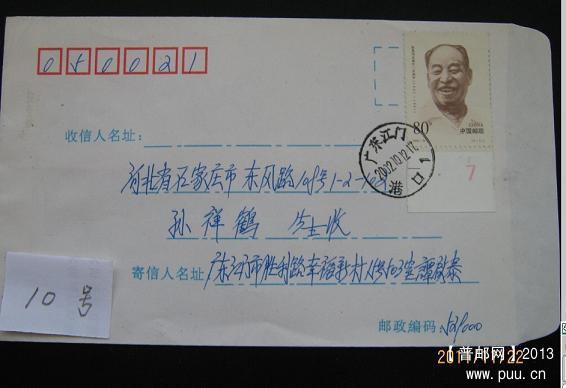 050021
80
中国邮政
CHINA
7
广东江门
2002.10.12.17
港口 1
收信人名址:
河北省石家庄市东风路108号1-2-102
孙祥鹤 先生收
寄信人名址 广东江门市胜利路幸福新村 103室谭啟泰
10号
邮政编码: 529000
【普邮网】2013
www.puu.cn